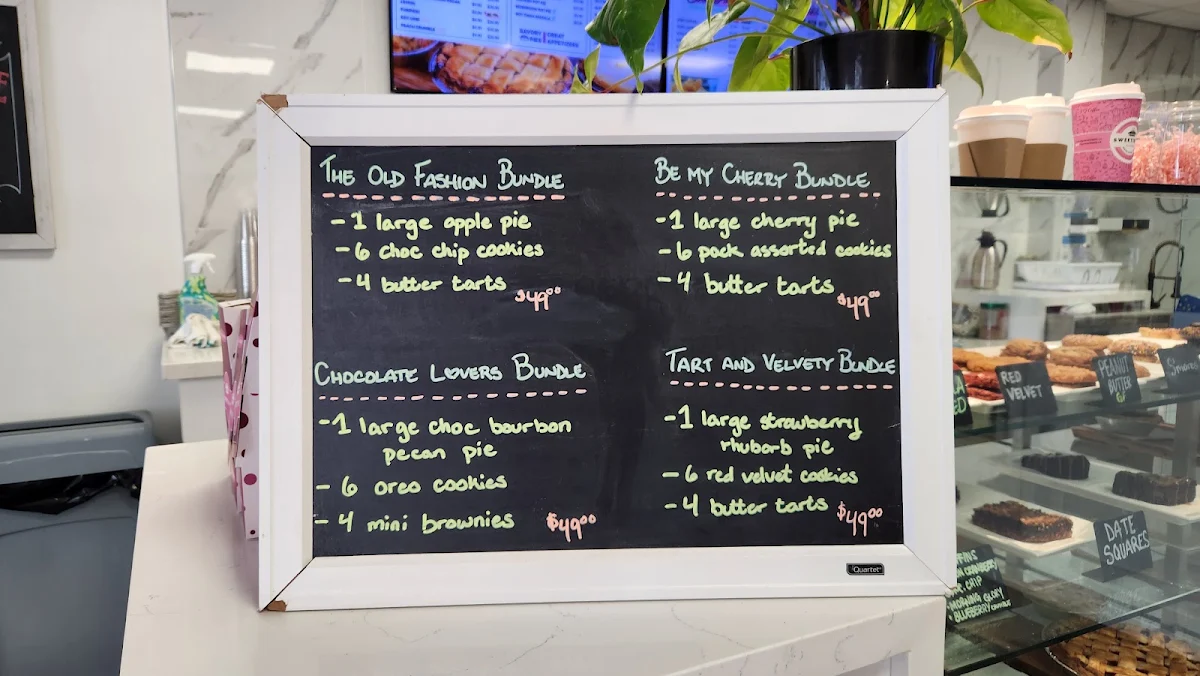 SAVORY
GREAT
APPETIZERS
THE OLD FASHION BUNDLE
-1 large apple pie
-6 choc chip cookies
-4 butter tarts
$49⁰⁰
BE MY CHERRY BUNDLE
-1 large cherry pie
-6 pack assorted cookies
-4 butter tarts
$49⁰⁰
CHOCOLATE LOVERS BUNDLE
-1 large choc bourbon
pecan pie
- 6 oreo cookies
- 4 mini brownies
$49⁰⁰
TART AND VELVETY BUNDLE
-1 large strawberry
rhubarb pie
-6 red velvet cookies
-4 butter tarts
$49⁰⁰
Quartet
RED
VELVET
PEANUT
BUTTER
S'mores
DATE
SQUARES
CRANBERRY
CHIP
MORNING GLORY
BLUEBERRY